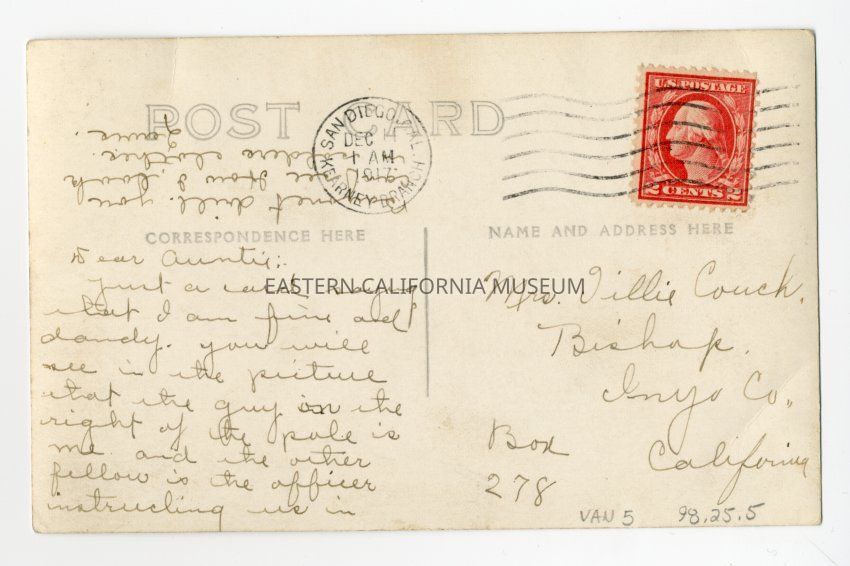 POST CARD
SAN DIEGO, CAL.
DEC
1 AM
1917
KEARNEY BRANCH
U.S. POSTAGE
2 CENTS 2
CORRESPONDENCE HERE
NAME AND ADDRESS HERE
Dear Auntie:
Just a card
that I am fine and
dandy. you will
see in the picture
that the guy on the
right of the pole is
me and the other
fellow is the officer
instructing us in
drill. you
see How I look
clothes.
EASTERN CALIFORNIA MUSEUM
Mrs. Villie Couch.
Bishop.
Inyo Co.,
Box
278
California
VAN 5
98.25.5